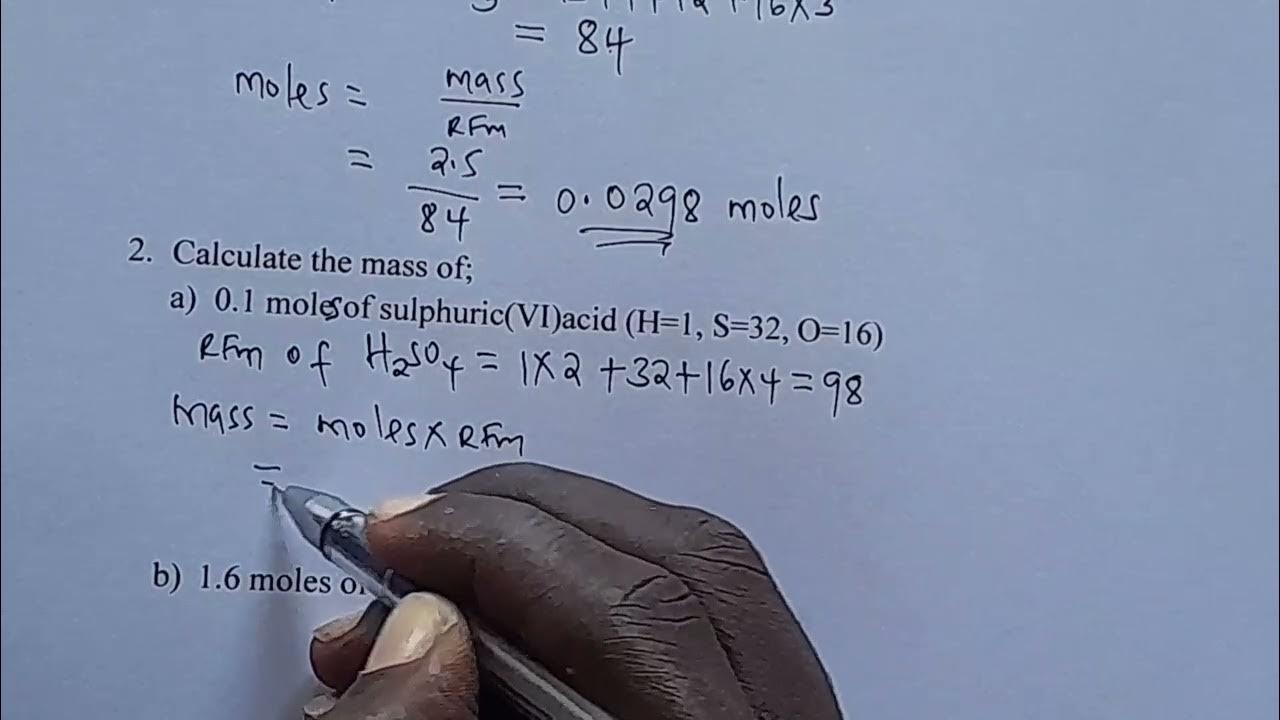 16x3
= 84
moles = mass
RFm
= 2.5
84 = 0.0298 moles
2. Calculate the mass of;
a) 0.1 moles of sulphuric(VI)acid (H=1, S=32, O=16)
RFm of H₂SO₄ = 1x2 +32+16x4 = 98
mass = moles x RFm
=
b) 1.6 moles